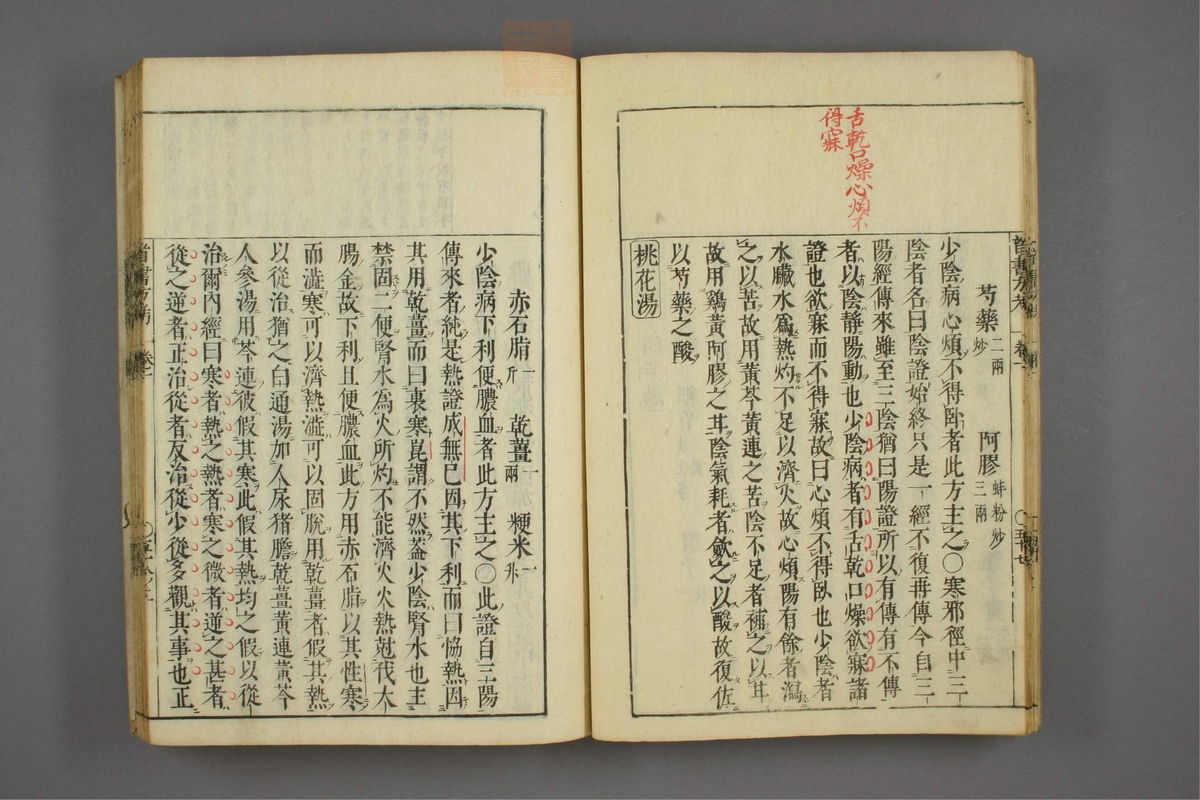 舌乾口燥心煩不
得寐
芍藥二兩炒 阿膠蚌粉炒三兩
少陰病心煩不得臥者此方主之○寒邪徑中三
陰者名曰陰證始終只是一經不復再傳今自三
陽經傳來雖至三陰猶曰陽證所以有傳有不傳
者以陰靜陽動也少陰病者有舌乾口燥欲寐諸
證也欲寐而不得寐故曰心煩不得臥也少陰者
水臟水爲熱灼不足以濟火故心煩陽有餘者瀉
之以苦故用黃芩黃連之苦陰不足者補之以甘
故用鷄黃阿膠之甘陰氣耗者斂之以酸故復佐
以芍藥之酸
桃花湯
赤石脂一斤 乾薑一兩 粳米一升
少陰病下利便膿血者此方主之○此證自三陽
傳來者純是熱證成無已因其下利而曰恊熱因
其用乾薑而曰裏寒崑謂不然蓋少陰腎水也主
禁固二便腎水為火所灼不能濟火火熱尅伐大
腸金故下利且便膿血此方用赤石脂以其性寒
而澁寒可以濟熱澁可以固脫用乾薑者假其熱
以從治猶之白通湯加人尿猪膽乾薑黃連黃芩
人參湯用芩連彼假其寒此假其熱均之假以從
治爾內經曰寒者熱之熱者寒之微者逆之甚者
從之逆者正治從者反治從少從多觀其事也正